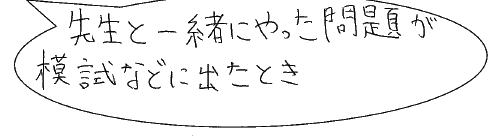 先生と一緒にやった問題が
模試などに出たとき